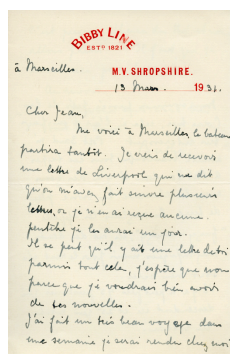 BIBBY LINE
ESTD 1821
à Marseilles.
M.V. SHROPSHIRE.
13 Mars 1931.
Cher Jean,
Me voici à Marseilles le bateau
partira tantôt. Je viens de recevoir
une lettre de Liverpool qui me dit
qu'on m'avez fait suivre plusieurs
lettres, or je n'en ai reçue aucune.
peutêtre je les aurai un jour.
Il se peut qu'il y ait une lettre de toi
parmis tout cela, j'espère que
parce que je voudrais bien avoir
de tes nouvelles.
J'ai fait un très beau voyage dans
une semaine je serai rendu chez moi